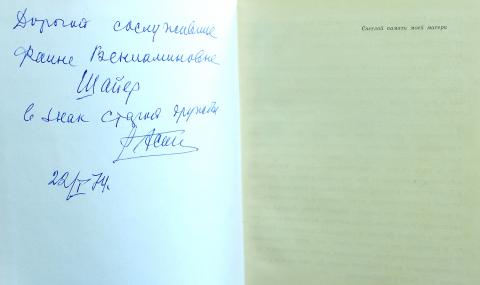 Дорогой сослуживице
Фаине Вениаминовне
Шайер
в знак старой дружбы
22/I 74г.
Светлой памяти моей матери